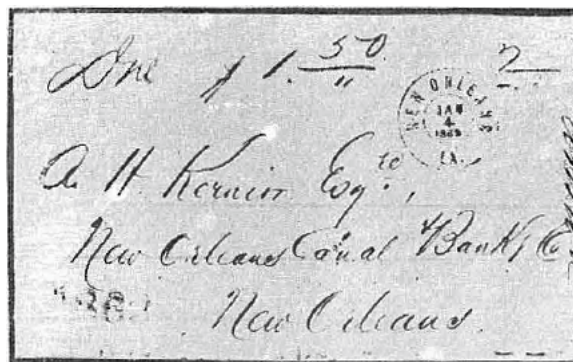 Due $ 1. 50 2
NEW ORLEANS
JAN
4
LA.
A. H. Kernion Esqre,
New Orleans Canal & Bank'g Co
New Orleans.